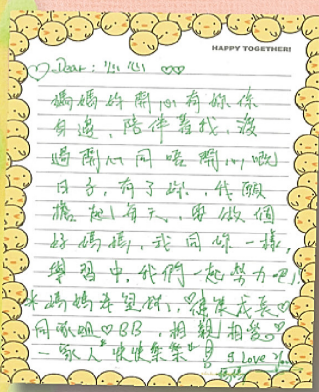 HAPPY TOGETHER!
Dear:
媽媽好開心有你係
身邊,陪伴着我,渡
過開心同唔開心嘅
日子,有了你,
每天,要做個
好媽媽,我同你一樣,
學習中,我們一起努力吧!
媽媽希望你,健康成長♡
同家姐♡BB,相親相愛♡
一家人"快快樂樂"! I love you
媽媽